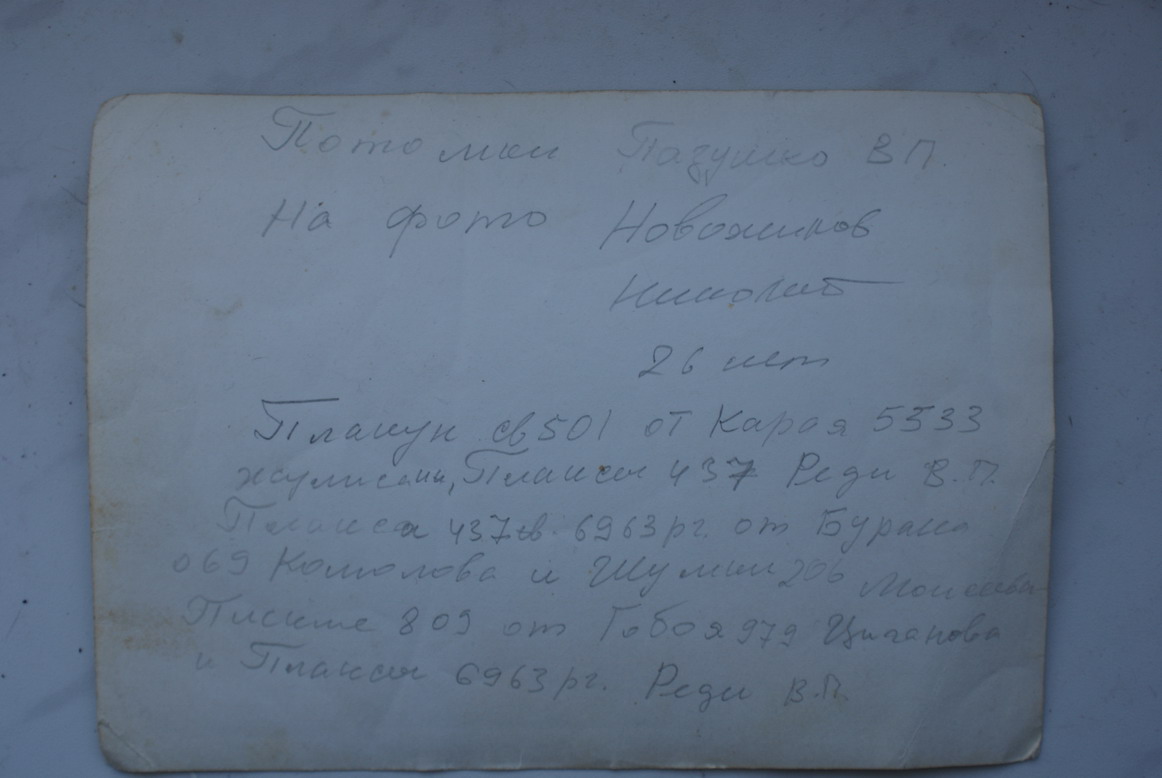 Потомки Пазушко В П.
На фото Новожилов
Николай
26 лет
Плакун св 501 от Карая 5533
Плаксы 437 Реди В.П.
Плакса 437 св. 6963 рг. от Бурана
069 Комолова и Шумки 206 Моисеева
809 от Гобоя 979 Циганова
и Плаксы 6963 рг. Реди В.П.